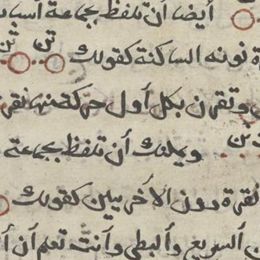 أيضا أن تلفظ بجماعة أسباب
تن تن
ة نونه الساكنة كقولك
وتقرن بكل أول حركة منها نقرة
تن
ويلفك أن تلفظ بجماعة
نقرة دون الأخريين كقولك
السريع والبطي وأنت تعلم أن